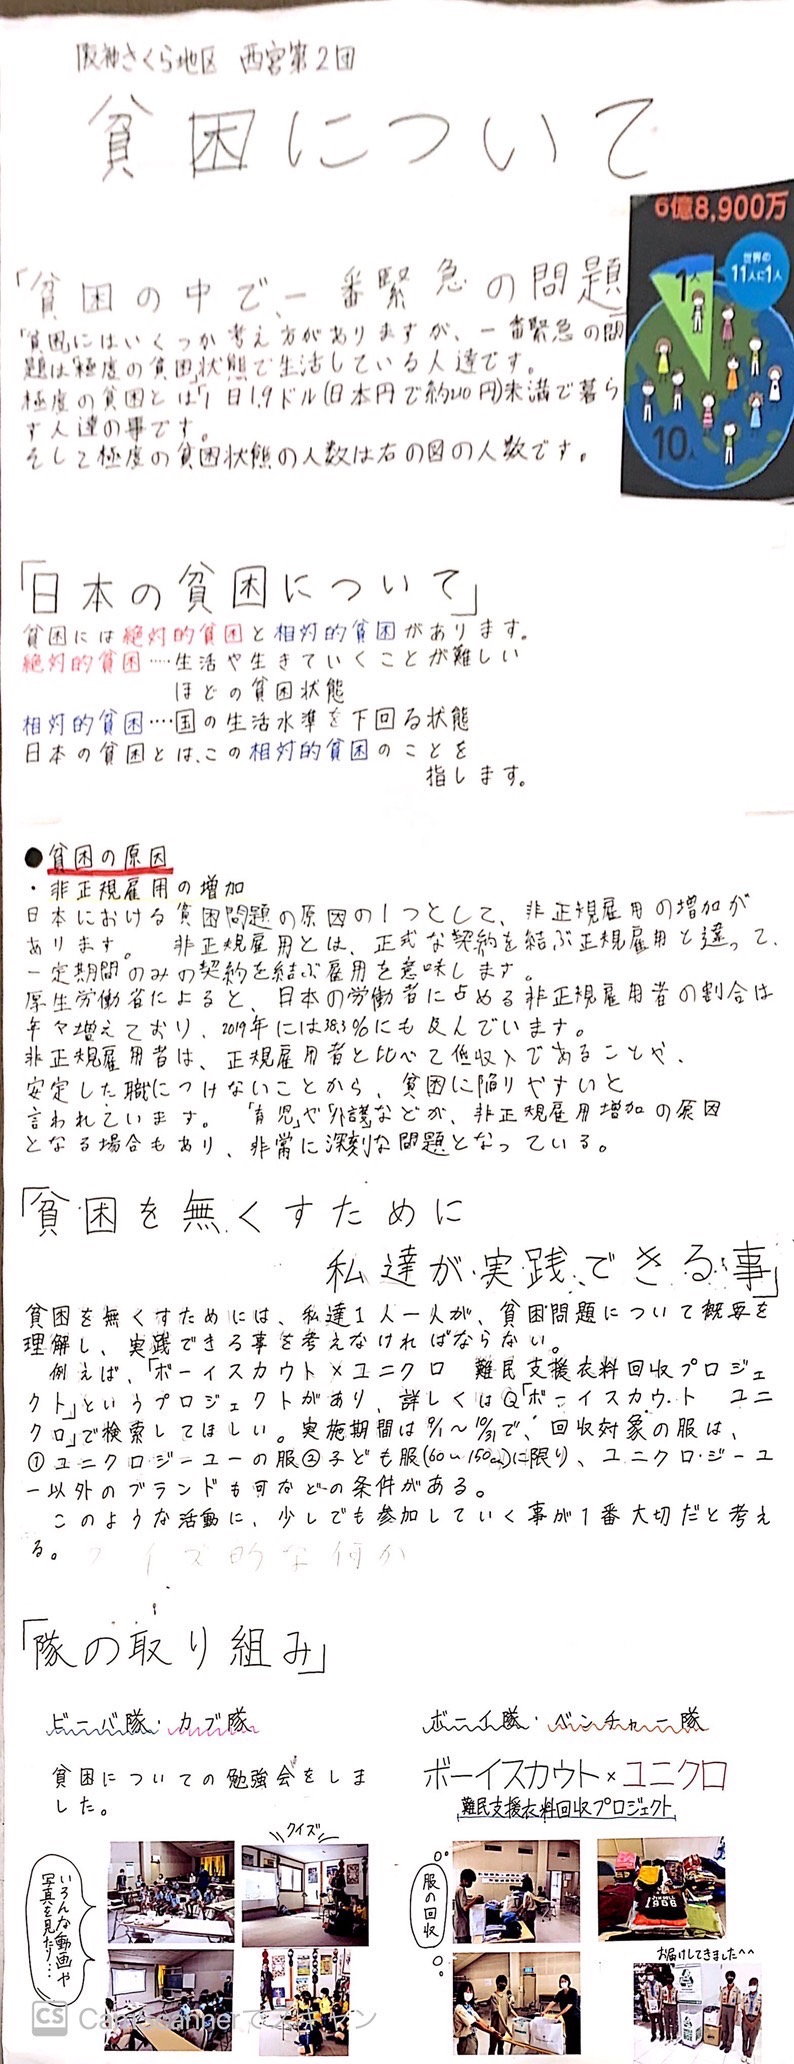 阪神さくら地区 西宮第2団
貧困について
6億8,900万
世界の
11人に1人
1人
10人
「貧困の中で、一番緊急の問題」
「貧困」にはいくつか考え方がありますが、一番緊急の問
題は「極度の貧困」状態で生活している人達です。
極度の貧困とは「1日1.9ドル(日本円で約210円)未満で暮ら
す人達の事です。
そして極度の貧困状態の人数は右の図の人数です。
「日本の貧困について」
貧困には絶対的貧困と相対的貧困があります。
絶対的貧困……生活や生きていくことが難しい
ほどの貧困状態
相対的貧困……国の生活水準を下回る状態
日本の貧困とは、この相対的貧困のことを
指します。
●貧困の原因
・非正規雇用の増加
日本における貧困問題の原因の1つとして、非正規雇用の増加が
あります。 非正規雇用とは、正式な契約を結ぶ正規雇用と違って、
一定期間のみの契約を結ぶ雇用を意味します。
厚生労働省によると、日本の労働者に占める非正規雇用者の割合は
年々増えており、2019年には38.3%にも及んでいます。
非正規雇用者は、正規雇用者と比べて低収入であることや、
安定した職につけないことから、貧困に陥りやすいと
言われています。 「育児」や「介護」などが、非正規雇用増加の原因
となる場合もあり、非常に深刻な問題となっている。
「貧困を無くすために
私達が実践できる事」
貧困を無くすためには、私達1人一人が、貧困問題について概要を
理解し、実践できる事を考えなければならない。
例えば、「ボーイスカウト×ユニクロ 難民支援衣料回収プロジェ
クト」というプロジェクトがあり、詳しくはQ「ボーイスカウト ユニ
クロ」で検索してほしい。実施期間は9/1〜10/31で、回収対象の服は、
①ユニクロ・ジーユーの服②子ども服(60〜150cm)に限り、ユニクロ・ジーユ
ー以外のブランドも可などの条件がある。
このような活動に、少しでも参加していく事が1番大切だと考え
る。
クイズ的な何か
「隊の取り組み」
ビーバー隊・カブ隊
貧困についての勉強会をしま
した。
クイズ
いろんな動画や
写真を見たり…
ボーイ隊・ベンチャー隊
ボーイスカウト×ユニクロ
難民支援衣料回収プロジェクト
服の回収
お届けしてきました^^
CS CamScannerでスキャン